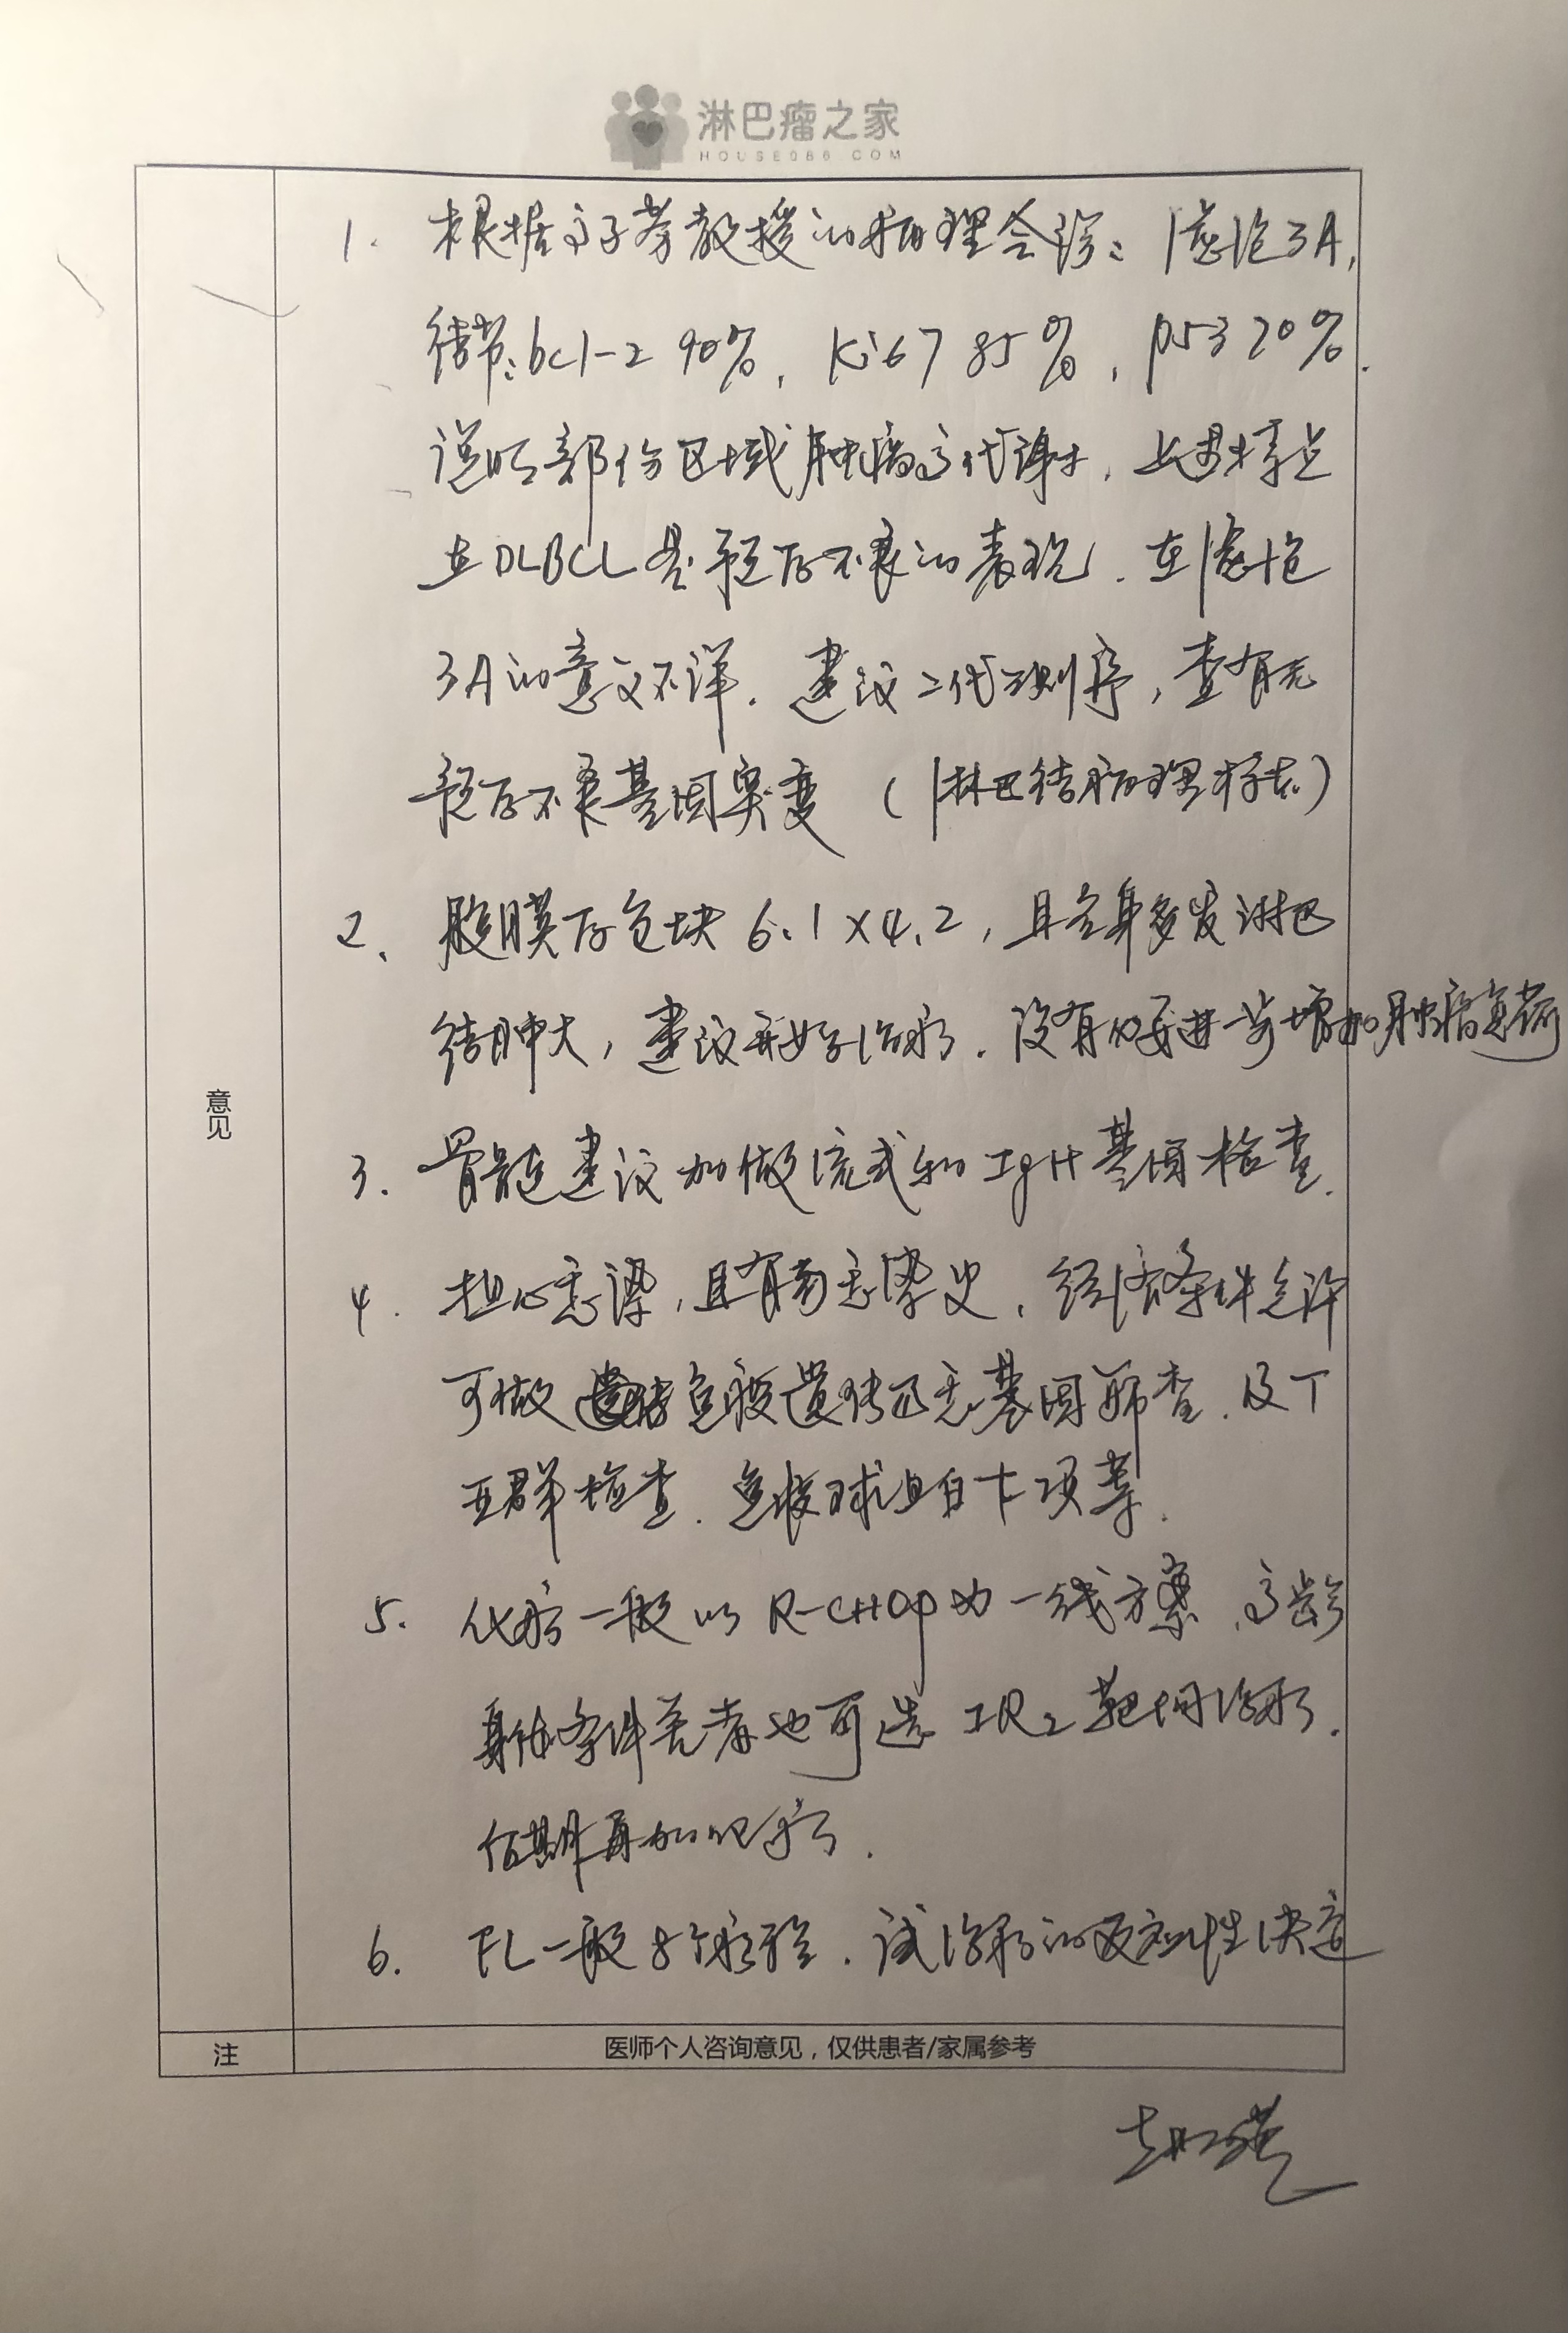 淋巴瘤之家
HOUSE086.COM
1. 根据高子芬教授的病理会诊：滤泡3A，
结节：bcl-2 90%，Ki67 85%，p53 20%.
说明部份区域肿瘤高代谢，上述特点
在DLBCL是预后不良的表现. 在滤泡
3A的意义不详. 建议二代测序，查有无
预后不良基因突变（淋巴结病理标本）
2、腹膜后包块 6.1×4.2，且全身多发淋巴
结肿大，建议开始治疗. 没有必要进一步增加肿瘤负荷
3. 骨髓建议加做流式和IgH基因检查.
4. 担心感染，且有 感染史，经济条件允许
可做 免疫遗传 基因筛查. 及T
亚群检查. 免疫球蛋白 项等.
5. 化疗一般以R-CHOP为一线方案，高龄
身体条件差者也可选 IR2 靶向治疗.
后期再加化疗.
6. FL一般8个疗程. 试治疗的反应性决定
意见
注
医师个人咨询意见，仅供患者/家属参考